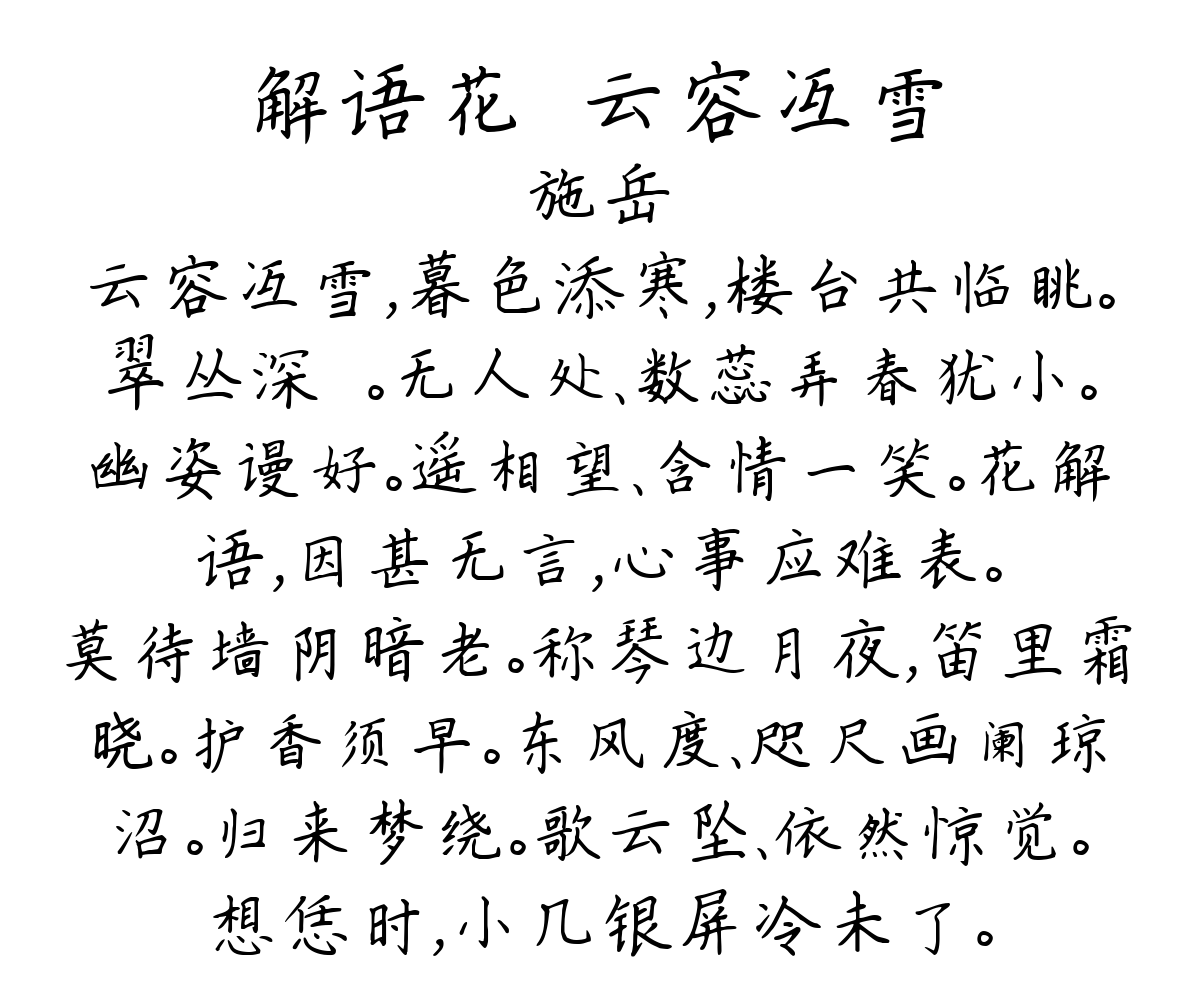 解语花 云容冱雪
施岳
云容冱雪,暮色添寒,楼台共临眺。
翠丛深 。无人处、数蕊弄春犹小。
幽姿谩好。遥相望、含情一笑。花解
语,因甚无言,心事应难表。
莫待墙阴暗老。称琴边月夜,笛里霜
晓。护香须早。东风度、咫尺画阑琼
沼。归来梦绕。歌云坠、依然惊觉。
想恁时,小几银屏冷未了。